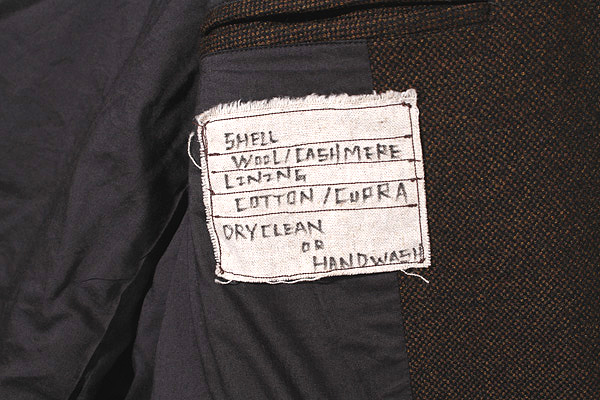 SHELL
WOOL/CASHMERE
LINING
COTTON/CUPRA
DRYCLEAN
OR
HANDWASH